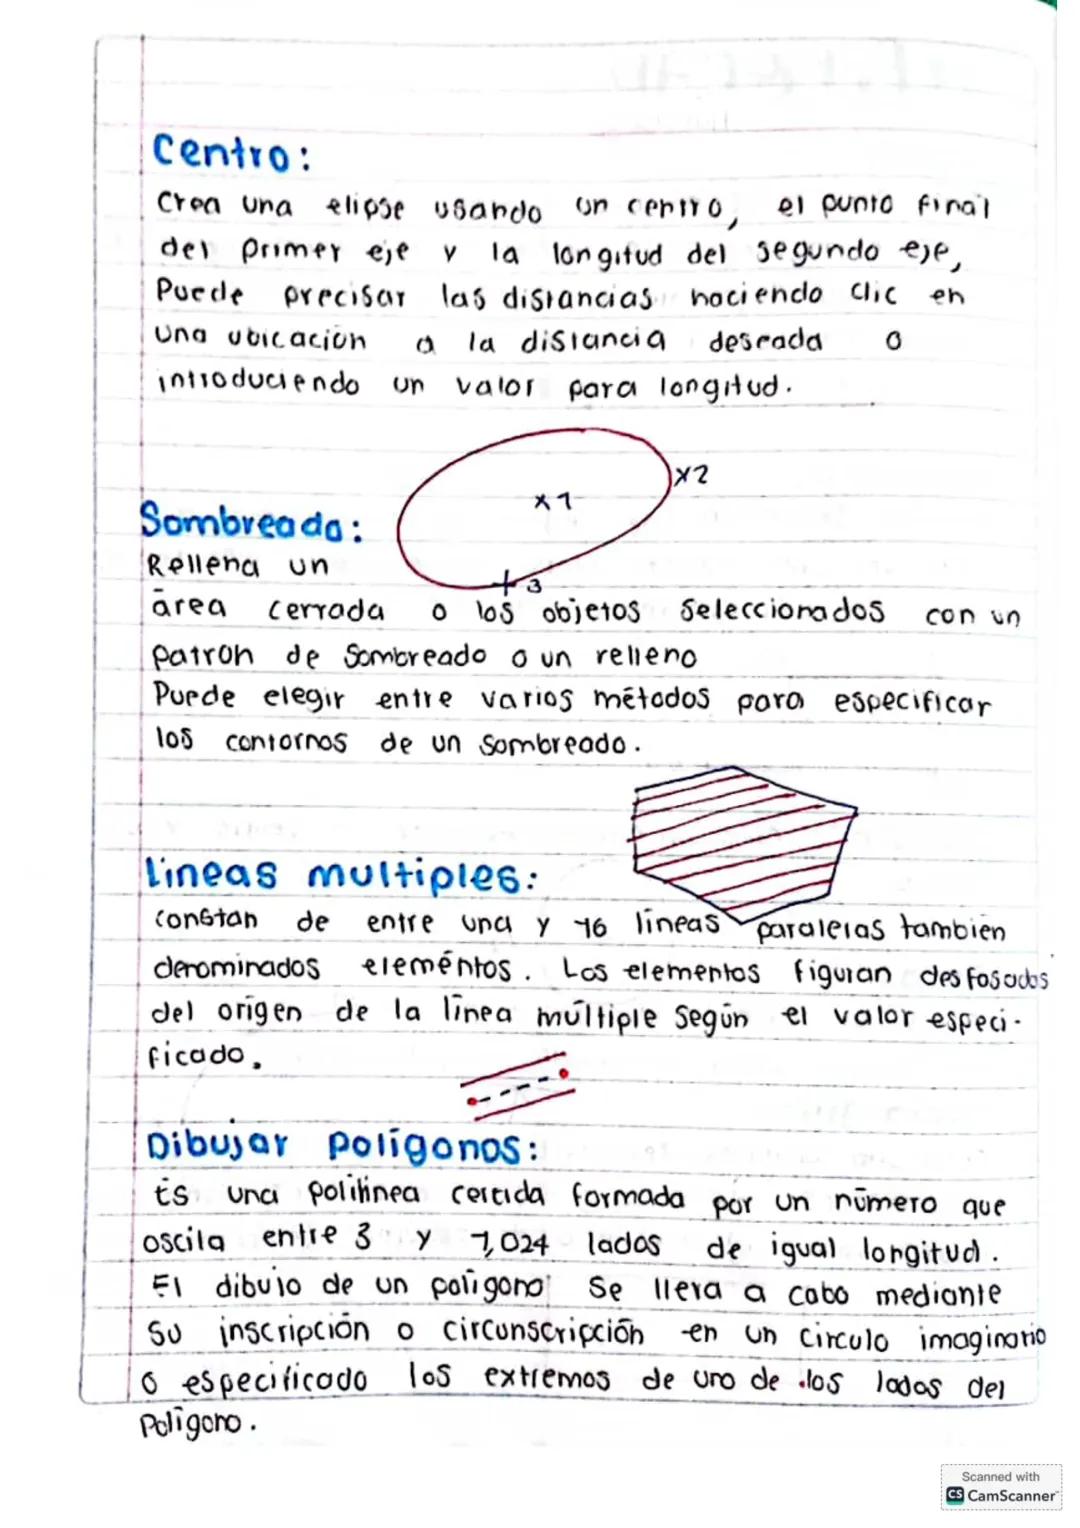 Centro:
Crea una elipse usando un centro, el punto final
del primer eje y la longitud del segundo eje,
Puede precisar las distancias haciendo clic en
una ubicación a la distancia deseada o
introduciendo un valor para longitud.
x2
x 1
Sombreado:
3
Rellena un
área cerrada o los objetos seleccionados con un
patron de sombreado o un relleno
Puede elegir entre varios métodos para especificar
los contornos de un sombreado.
Lineas multiples:
constan de entre una y 16 líneas paralelas tambien
denominados eleméntos. Los elementos figuran desfasados
del origen de la línea múltiple según el valor especi-
ficado.
Dibujar polígonos:
Es una polilínea cerrada formada por un número que
oscila entre 3 y 1,024 lados de igual longitud.
El dibujo de un polígono se lleva a cabo mediante
su inscripción o circunscripción en un circulo imaginario
o especificado los extremos de uno de los lados del
Polígono.
Scanned with
CS CamScanner